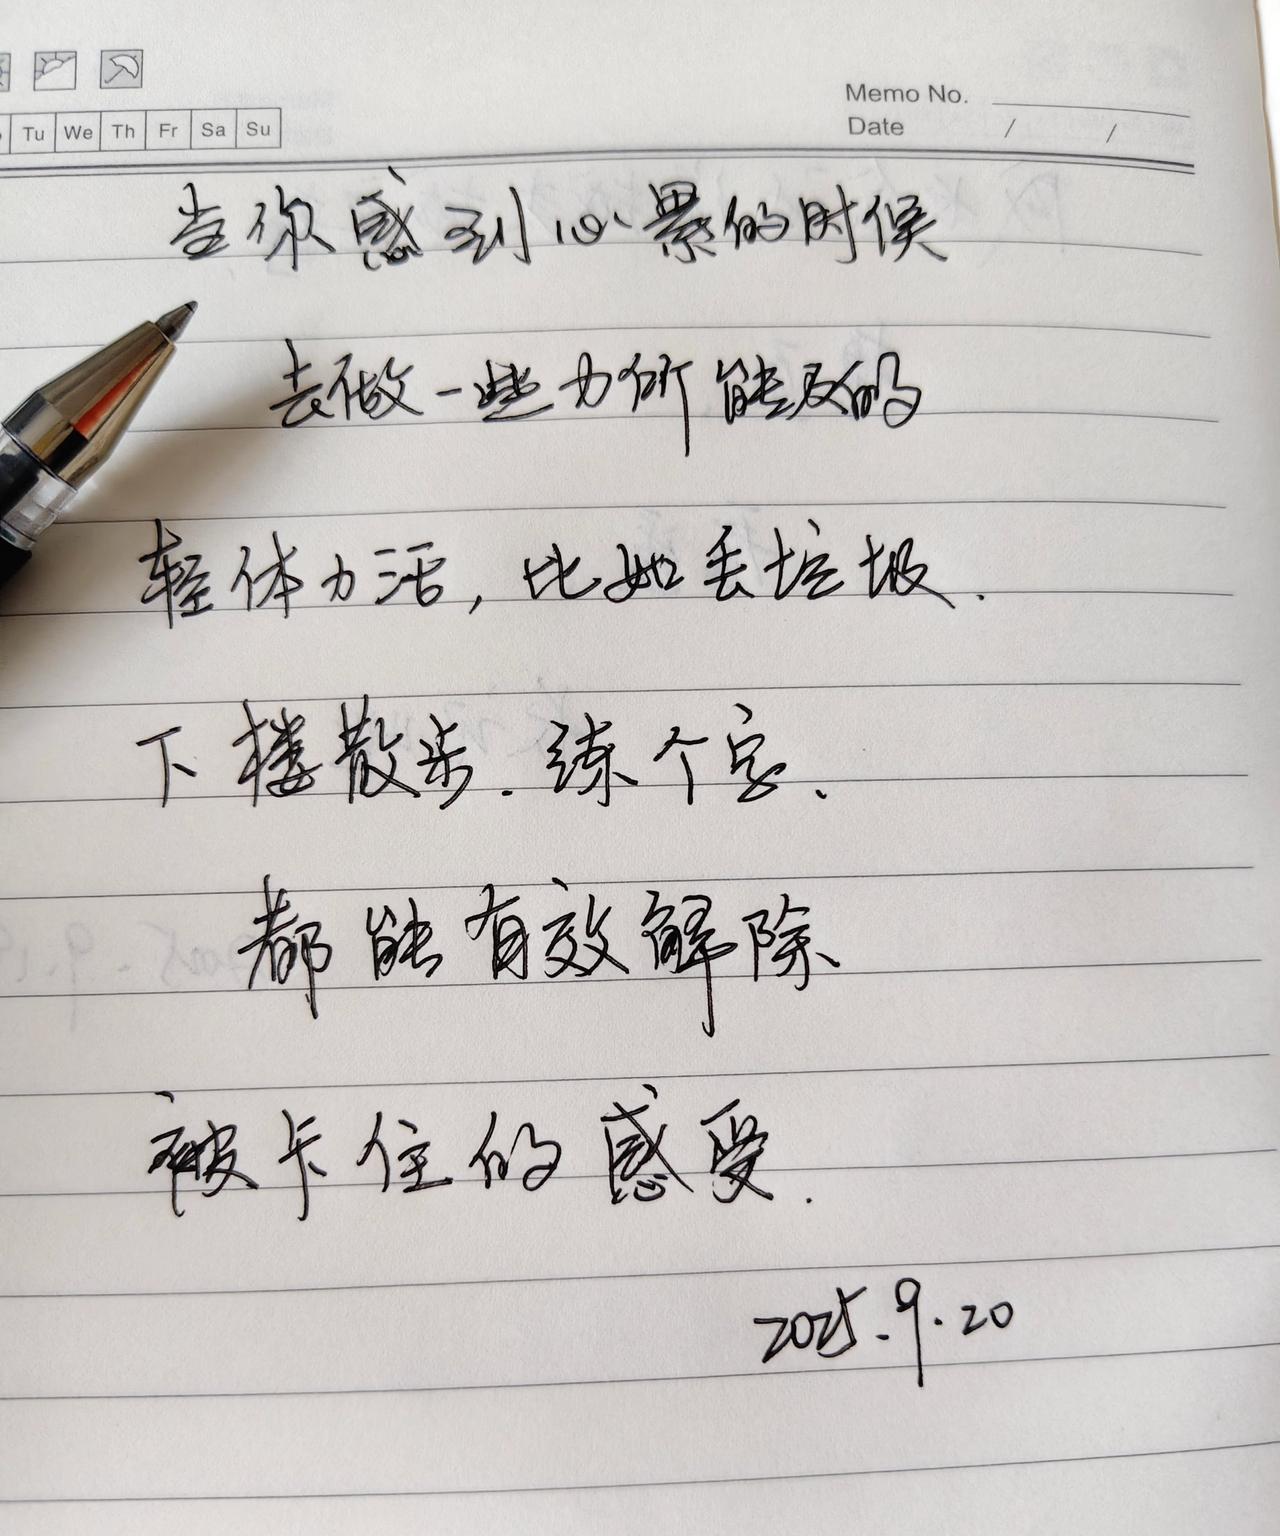 Memo No.
Tu We Th Fr Sa Su
Date / /
当你感到心累的时候
去做一些力所能及的
轻体力活,比如丢垃圾.
下楼散步.练个字、
都能有效解除
被卡住的感受.
2025.9.20